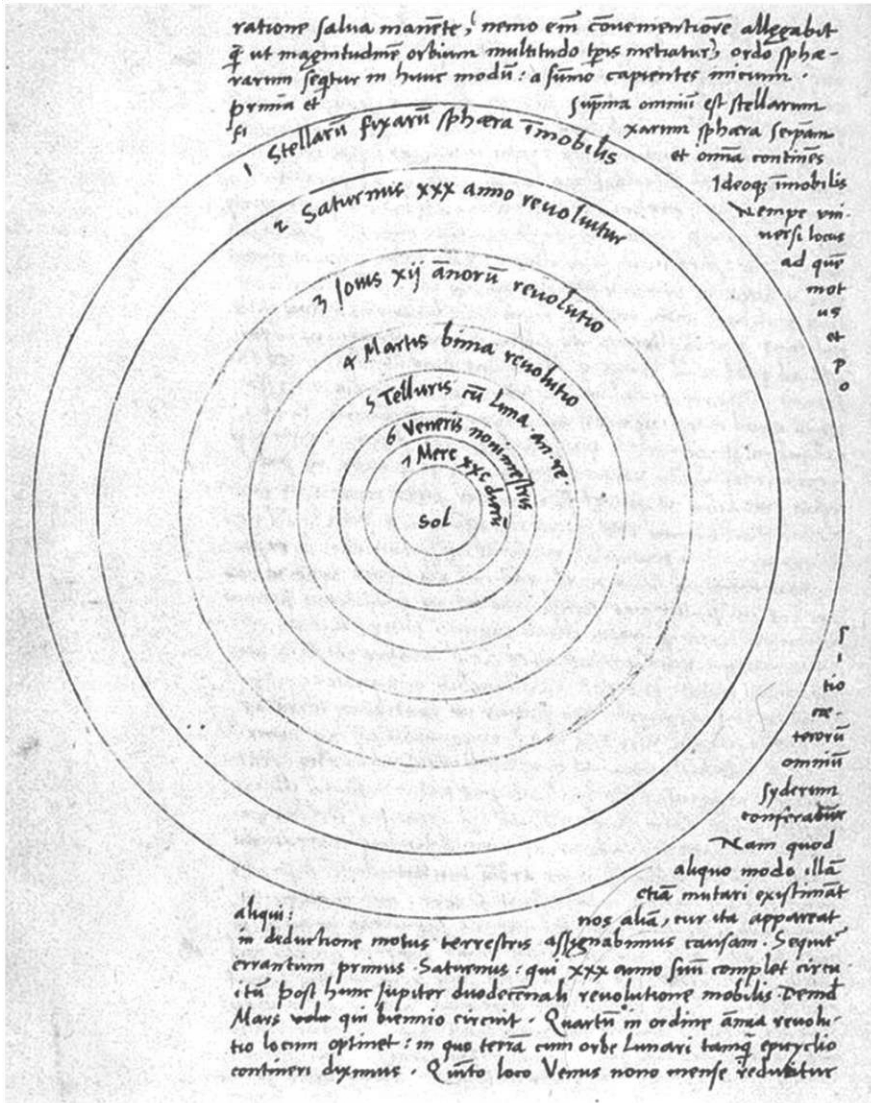 ratione salua manēte, nemo em̄ cōuenientiorē allegabit
q̄ ut magnitudinē orbium multitudo tp̄is metiatur, ordo sphæ-
rarum seqtur in hunc modū: a sūmo capientes initium.
prima et sup̄ma omniū est stellarum
fi xarum sphæra seip̄am
et omīa continēs
Ideoqꝫ īmobilis
Nempe vni-
uersi locus
ad quē
mot
us
et
p
o
1 Stellarū fixarū sphæra īmobilis
2 Saturnus xxx anno reuoluitur
3 Iouis xij āňorū reuolutio
4 Martis bima reuolutio
5 Telluris cū Luna. an. re.
6 Veneris nonimestris
7 Merc xxc dierū
Sol
s
i
tio
cæ-
terorū
omniū
syderum
conferātur
Nam quod
aliquo modo illā
etiā mutari existimāt
aliqui: nos aliā, cur ita appareat
in deductione motus terrestris assignabimus causam. Sequit᷑
errantium primus Saturnus: qui xxx anno suū complet circu
itū post hunc Jupiter duodecēnali reuolutione mobilis. Deind
Mars qui biennio circuit. Quartū in ordine ānua reuolu-
tio locum optinet: in quo terrā cum orbe Lunari tamq̄ epicyclio
contineri diximus. Quīto loco Venus nono mense reducitur